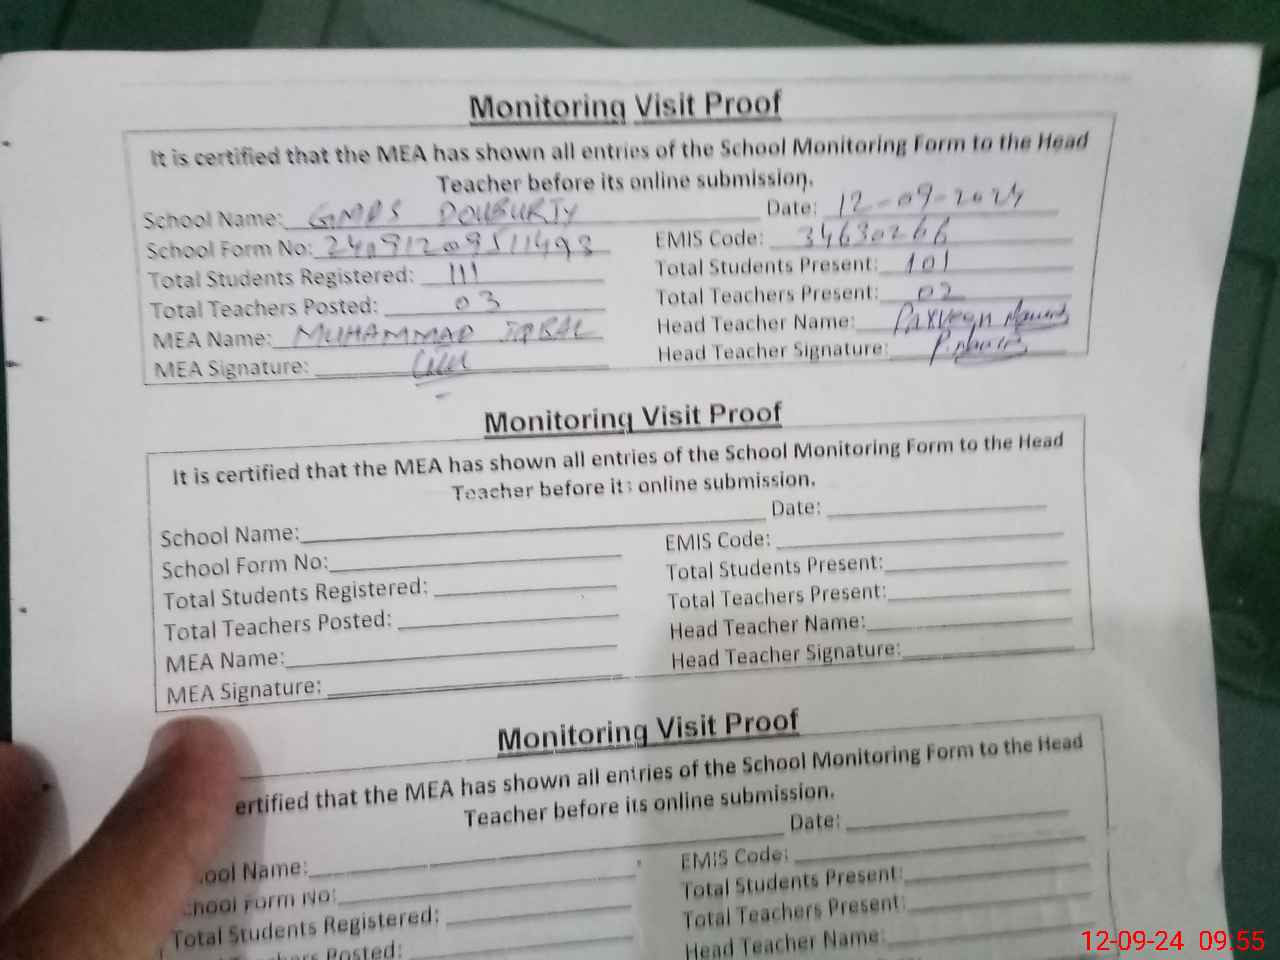 Monitoring Visit Proof
It is certified that the MEA has shown all entries of the School Monitoring Form to the Head
Teacher before its online submission.
School Name: GMPS Date: 12-09-2024
School Form No: 24091209511493 EMIS Code: 34630266
Total Students Registered: 111 Total Students Present: 101
Total Teachers Posted: 03 Total Teachers Present: 02
MEA Name: MUHAMMAD IQBAL Head Teacher Name:
MEA Signature: Head Teacher Signature:
Monitoring Visit Proof
It is certified that the MEA has shown all entries of the School Monitoring Form to the Head
Teacher before its online submission.
School Name: Date:
School Form No: EMIS Code:
Total Students Registered: Total Students Present:
Total Teachers Posted: Total Teachers Present:
MEA Name: Head Teacher Name:
MEA Signature: Head Teacher Signature:
Monitoring Visit Proof
ertified that the MEA has shown all entries of the School Monitoring Form to the Head
Teacher before its online submission.
ool Name: Date:
chool Form No: EMIS Code:
Total Students Registered: Total Students Present:
chers Posted: Total Teachers Present:
Head Teacher Name:
12-09-24 09:55